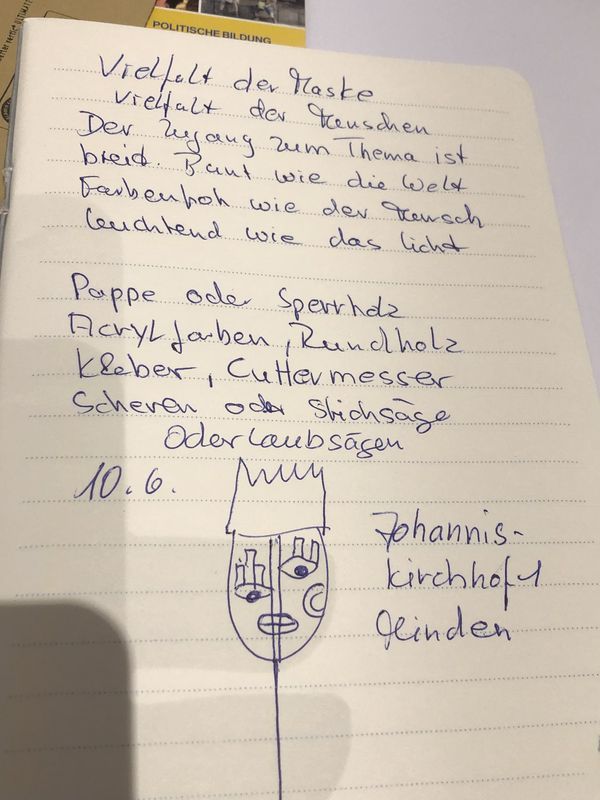 POLITISCHE BILDUNG
Vielfalt der Maske
Vielfalt der Menschen
Der Zugang zum Thema ist
breit. Bunt wie die Welt
Farbenfroh wie der Mensch
leuchtend wie das Licht
Pappe oder Sperrholz
Acrylfarben, Rundholz
Kleber, Cuttermesser
Scheren oder Stichsäge
Oder Laubsägen
10.6.
Johannis-
kirchhof 1
Minden